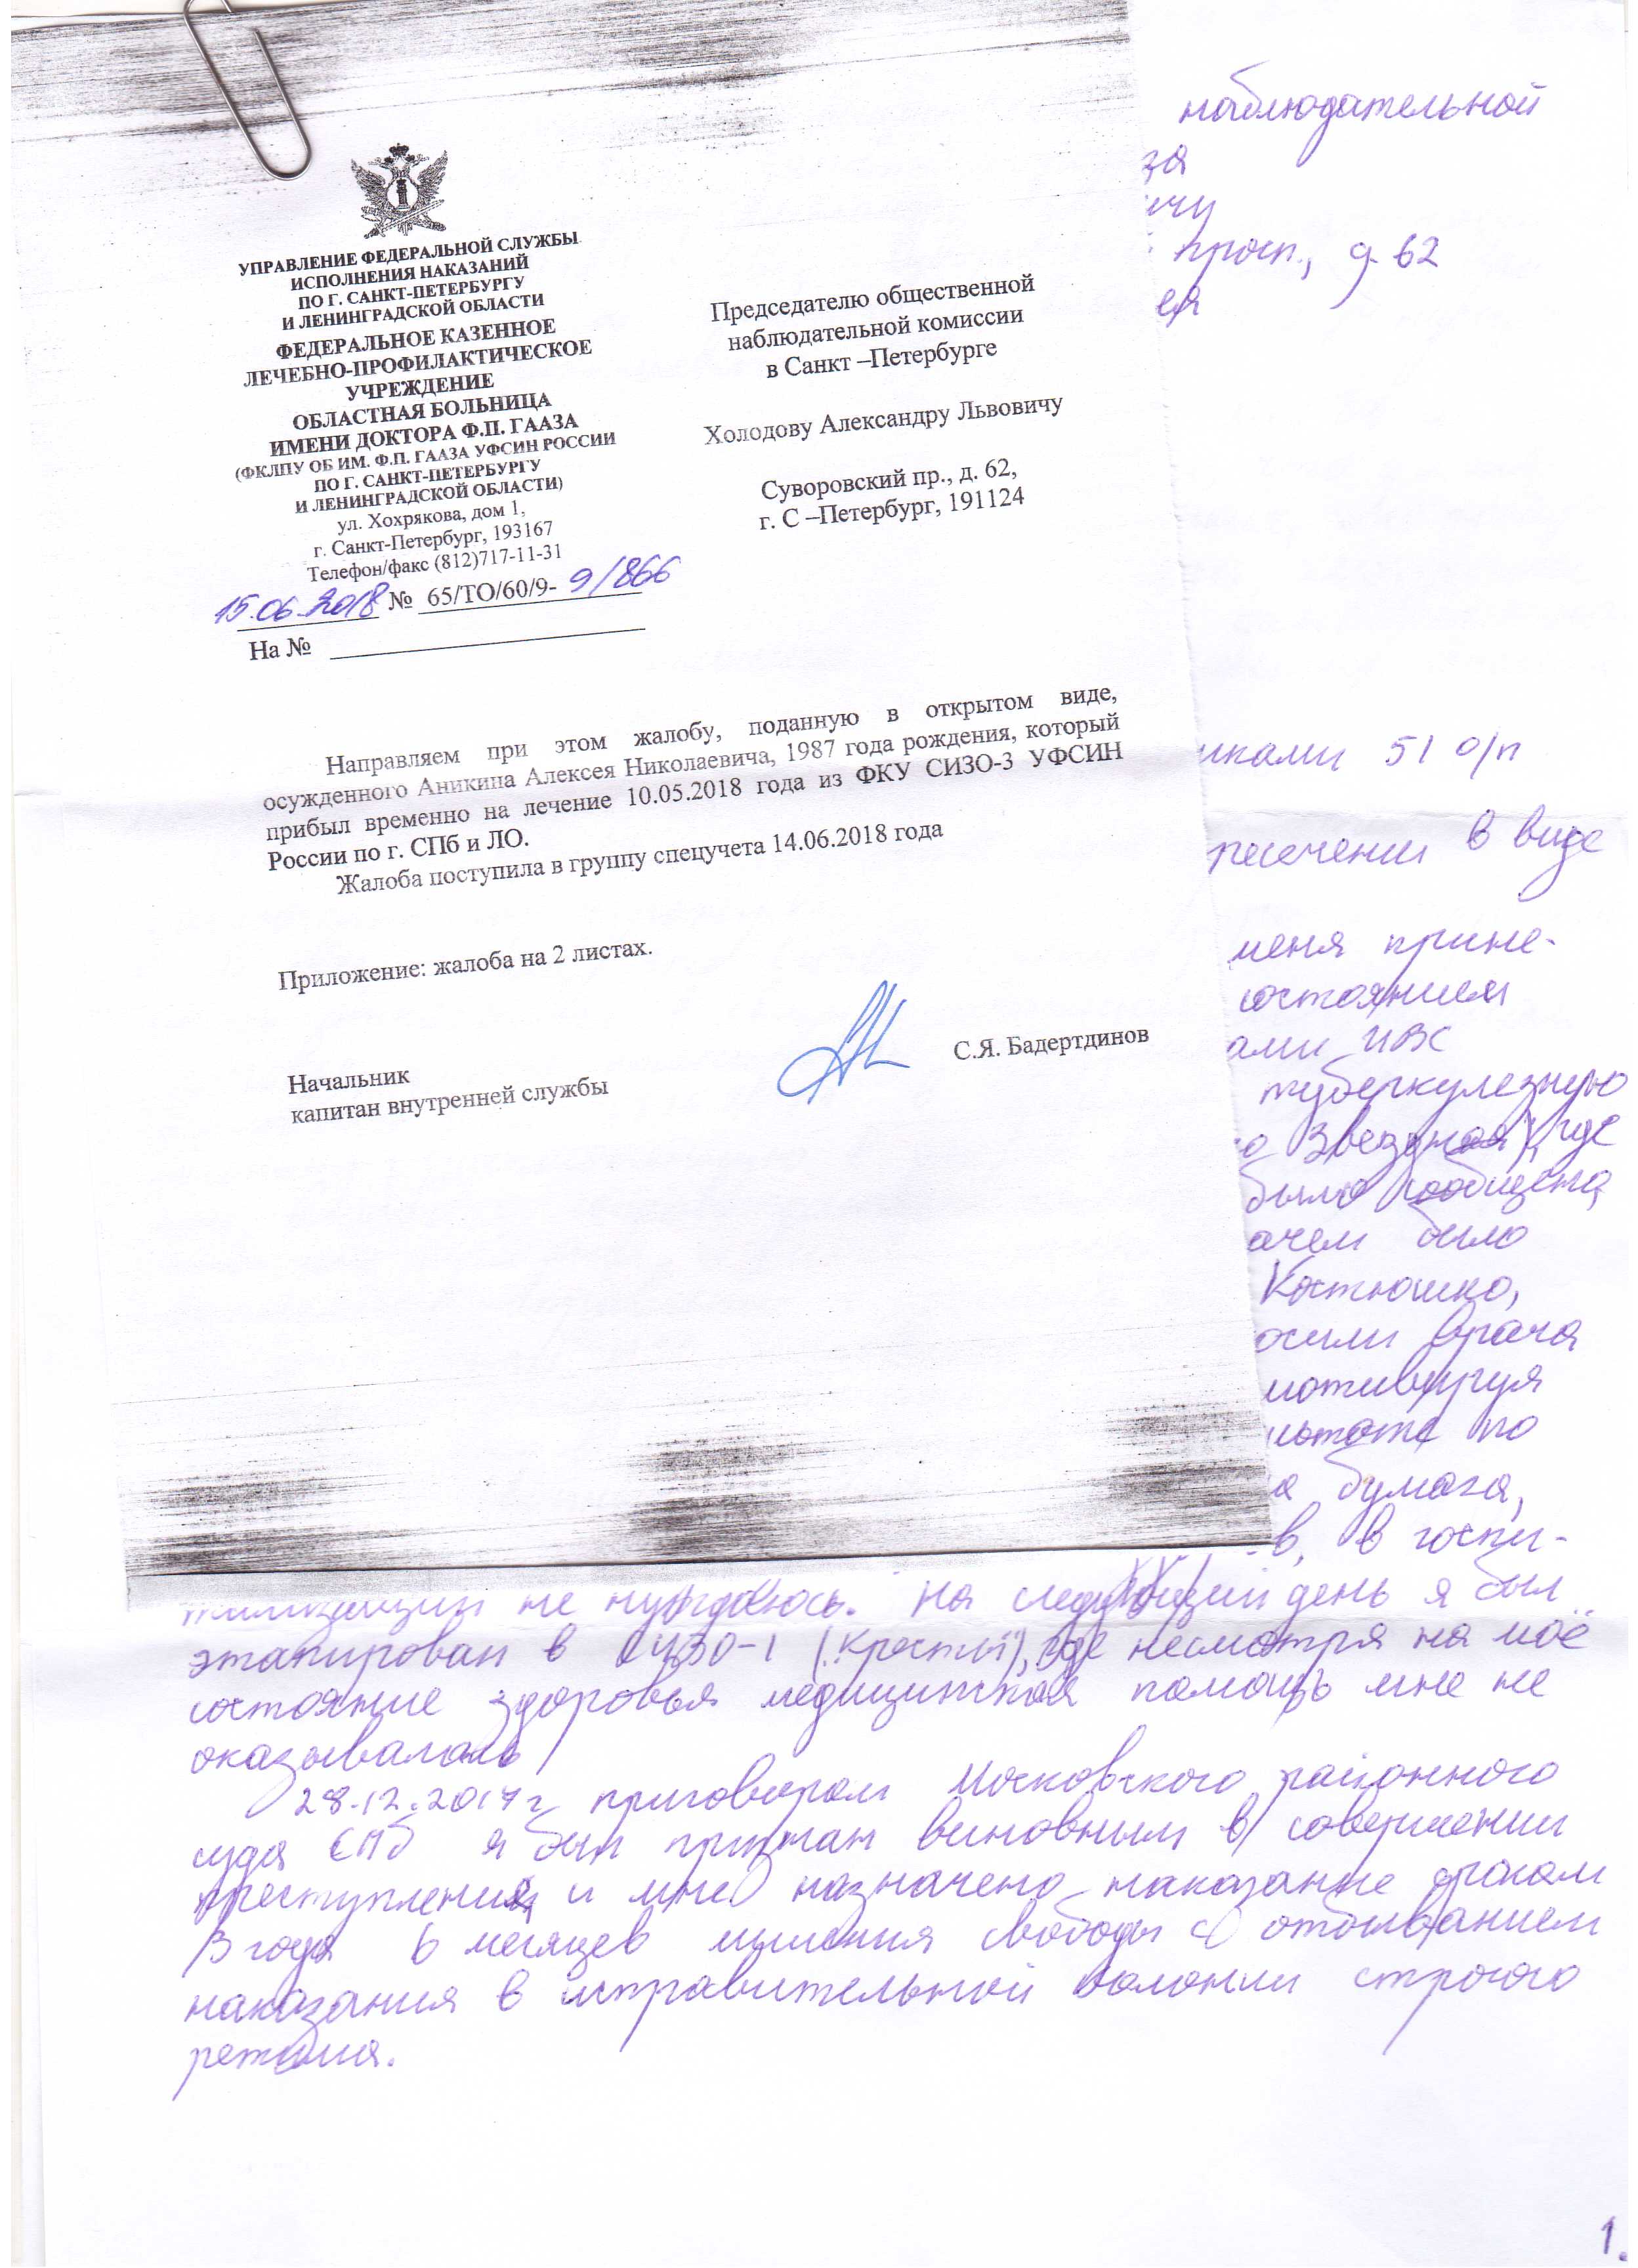 УПРАВЛЕНИЕ ФЕДЕРАЛЬНОЙ СЛУЖБЫ
ИСПОЛНЕНИЯ НАКАЗАНИЙ
ПО Г. САНКТ-ПЕТЕРБУРГУ
И ЛЕНИНГРАДСКОЙ ОБЛАСТИ
ФЕДЕРАЛЬНОЕ КАЗЕННОЕ
ЛЕЧЕБНО-ПРОФИЛАКТИЧЕСКОЕ
УЧРЕЖДЕНИЕ
ОБЛАСТНАЯ БОЛЬНИЦА
ИМЕНИ ДОКТОРА Ф.П. ГААЗА
(ФКЛПУ ОБ ИМ. Ф.П. ГААЗА УФСИН РОССИИ
ПО Г. САНКТ-ПЕТЕРБУРГУ
И ЛЕНИНГРАДСКОЙ ОБЛАСТИ)
ул. Хохрякова, дом 1,
г. Санкт-Петербург, 193167
Телефон/факс (812)717-11-31
15.06.2018 № 65/ТО/60/9- 9/866
На №
Председателю общественной
наблюдательной комиссии
в Санкт –Петербурге
Холодову Александру Львовичу
Суворовский пр., д. 62,
г. С –Петербург, 191124
Направляем при этом жалобу, поданную в открытом виде,
осужденного Аникина Алексея Николаевича, 1987 года рождения, который
прибыл временно на лечение 10.05.2018 года из ФКУ СИЗО-3 УФСИН
России по г. СПб и ЛО.
Жалоба поступила в группу спецучета 14.06.2018 года
Приложение: жалоба на 2 листах.
Начальник
капитан внутренней службы
С.Я. Бадертдинов
наблюдательной
за
ичу
просп., д. 62
ея
иками 51 о/п
ресечении в виде
меня прине-
состоянием
ами ИВС
туберкулезную
Звездная), где
было сообщено,
ачем было
Костюшко,
осили врача
мотивируя
по
а бумага,
в, в госпи-
тализации не нуждаюсь. На следующий день я был
этапирован в СИЗО-1 ("Кресты"), где несмотря на моё
состояние здоровья медицинская помощь мне не
оказывалась
28.12.2017 г приговором Московского районного
суда СПб я был признан виновным в совершении
преступления, и мне назначено наказание сроком
3 года 6 месяцев лишения свободы с отбыванием
наказания в исправительной колонии строгого
режима.
1.